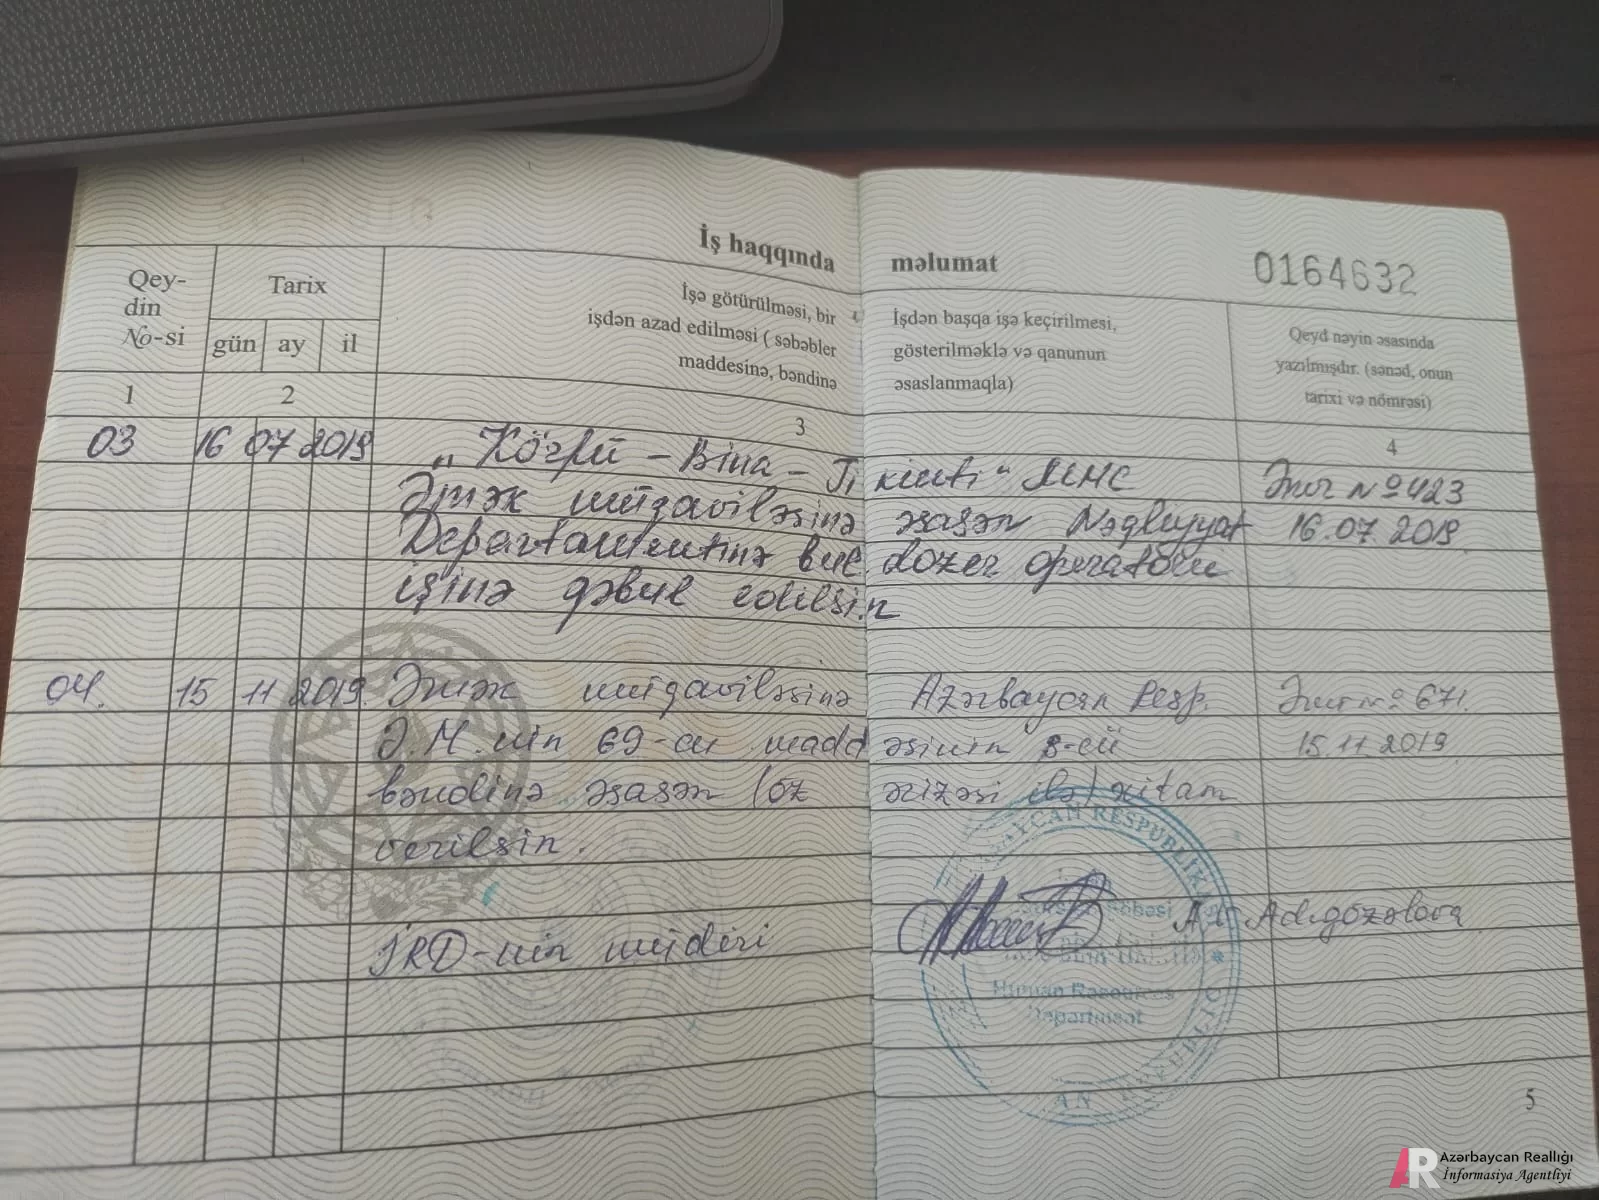 İş haqqında məlumat
0164632
Qey-
din
No-si
Tarix
gün ay il
İşə götürülməsi, bir
işdən azad edilməsi ( səbəblər
maddesinə, bəndinə
İşdən başqa işə keçirilmesi,
gösterilməklə və qanunun
əsaslanmaqla)
Qeyd nəyin əsasında
yazılmışdır. (sənəd, onun
tarixi və nömrəsi)
1 2 3 4
03 16 07 2019 „Körpü - Bina - Tikinti" MMC Əmr № 423
Əmək müqaviləsinə əsasən Nəqliyyat 16.07.2019
Departamentinə buldozer operatoru
işinə qəbul edilsin
04. 15 11 2019. Əmək müqaviləsinə Azərbaycan Resp. Əmr № 671.
Ə.M.-nin 69-cu maddəsinin 8-cü 15.11 2019
bəndinə əsasən (öz ərizəsi ilə) xitam
verilsin.
İRD-nin müdiri A. Adıgözəlova
AYCAN RESPUBLİKA
Human Resources
Department
5
AR
Azərbaycan Reallığı
İnformasiya Agentliyi